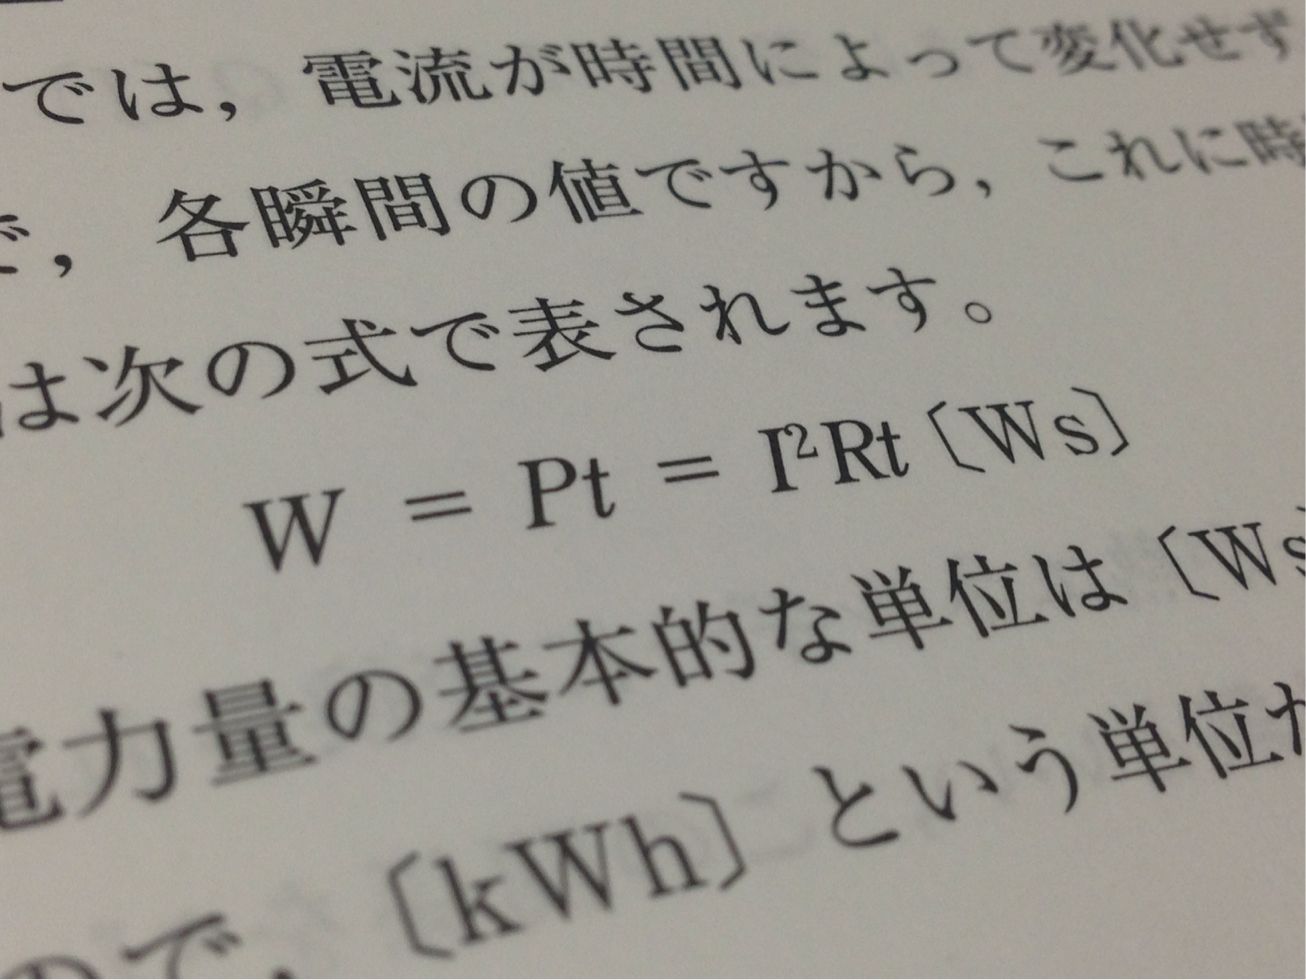 では，電流が時間によって変化せず
で，各瞬間の値ですから，これに時
は次の式で表されます。
W = Pt = I²Rt〔Ws〕
電力量の基本的な単位は〔Ws〕
ので，〔kWh〕という単位が